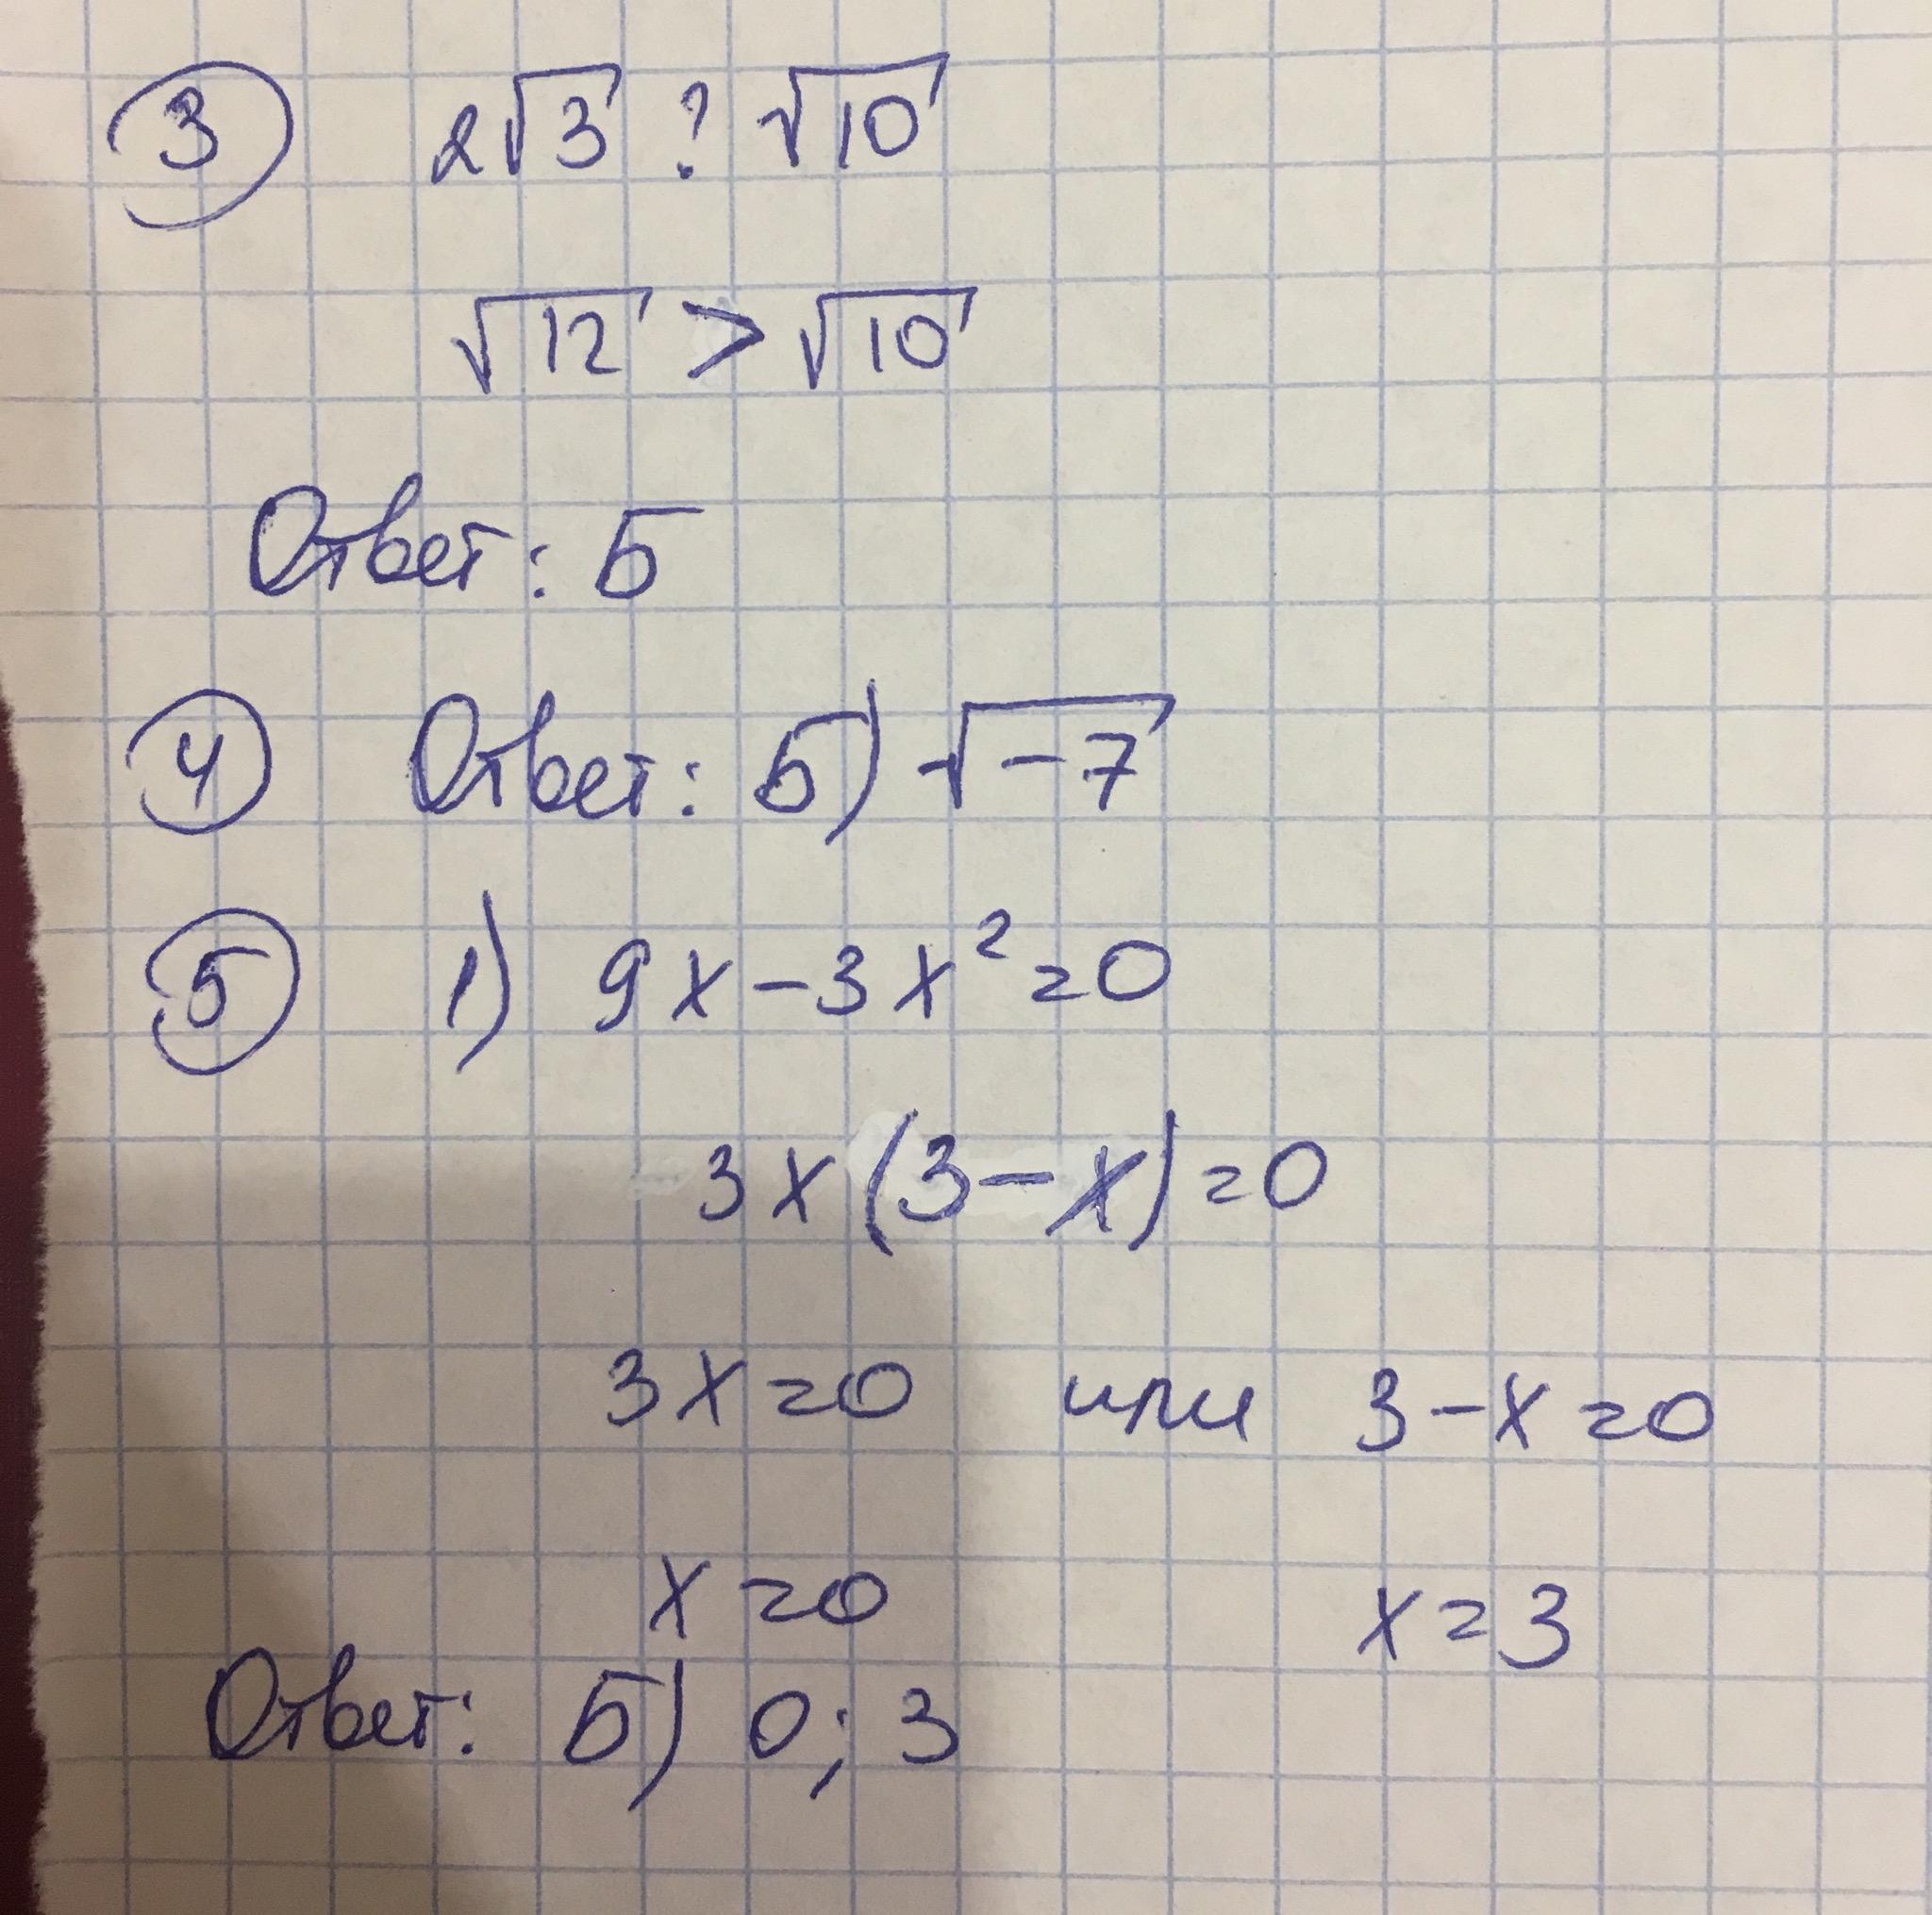 3 2√3 ? √10
√12 > √10
Ответ: Б
4 Ответ: Б) √-7
5 1) 9x-3x²=0
3x(3-x)=0
3x=0 или 3-x=0
x=0 x=3
Ответ: Б) 0; 3